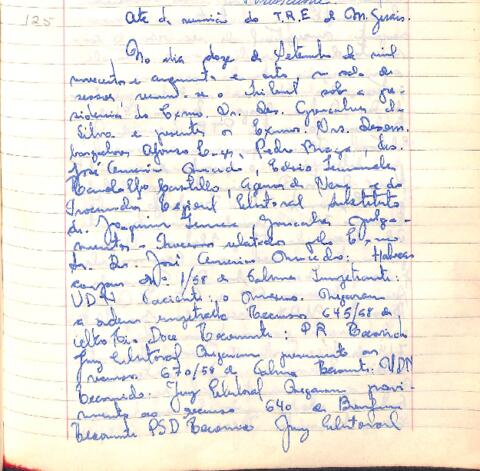 125
Ata da reunião do T.R.E de M. Gerais.
No dia doze de Setembro de mil
novecentos e cinquenta e oito, na sala de
sessões, reuniu-se o Tribunal sob a pre
sidencia do Exmo. Dr. Des. Gonçalves da
Silva e presentes os Exmos. Drs. Desem
bargadores Afonso Pedro Braga, drs.
José Americo Fernandes
Castilho, e do
Procurador Regional Eleitoral Substituto
dr. Joaquim Ferreira Gonçalves, julga
mentos - Processos relatados pelo Exmo
Dr. José Americo Habeas
corpus Nº 1/58 de Salinas Impetrante:
UDN Paciente, o mesmo. Negaram
a ordem impetrada Recurso 645/58 de
Doce Recorrente: PR Recorrido
Juiz Eleitoral Negaram provimento ao
recurso. 670/58 de Salinas Recorrente. UDN
Recorrido. Juiz Eleitoral Negaram provi
mento ao recurso 640 de
Recorrente PSD Recorrido Juiz Eleitoral